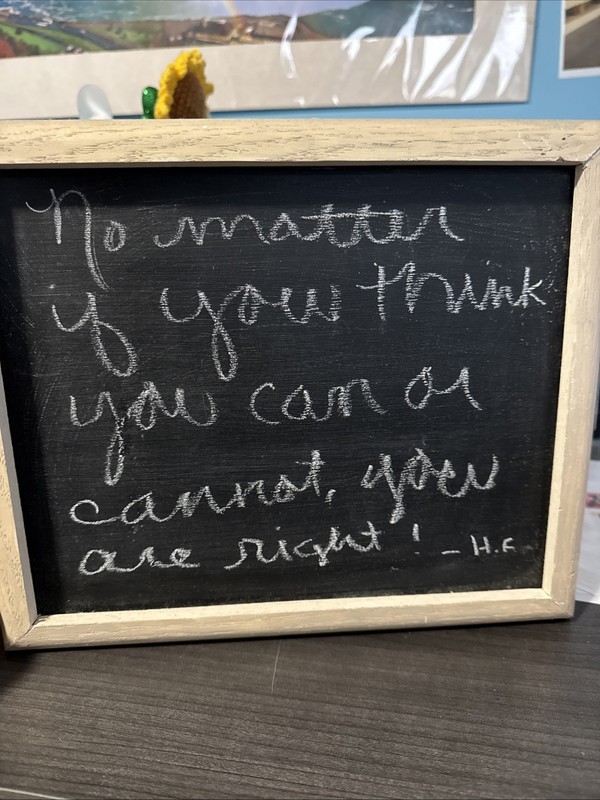 No matter
if you think
you can or
cannot, you
are right! - H.F.